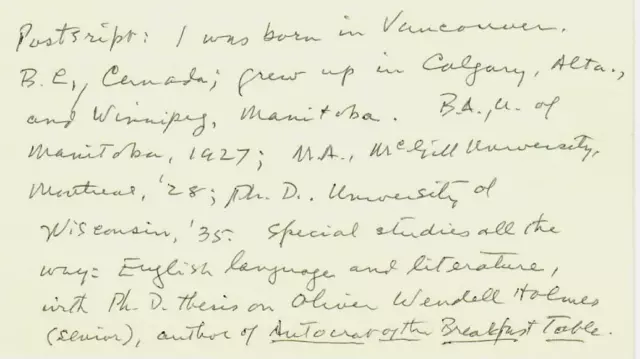 Postsript: I was born in Vancouver,
B.C., Canada; grew up in Calgary, Alta.,
and Winnipeg, Manitoba. B.A., U. of
Manitoba, 1927; M.A., McGill University,
Montreal, '28; Ph. D., University of
Wisconsin, '35. Special studies all the
way: English language and literature,
with Ph. D. thesis on Oliver Wendell Holmes
(senior), author of Autocrat of the Breakfast Table.